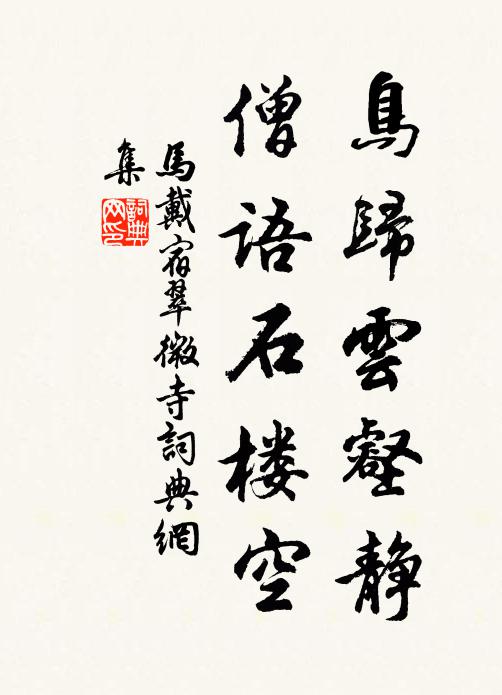 鳥歸雲壑靜
僧語石楼空
馬戴宿翠微寺詞典網
集
詞典網印